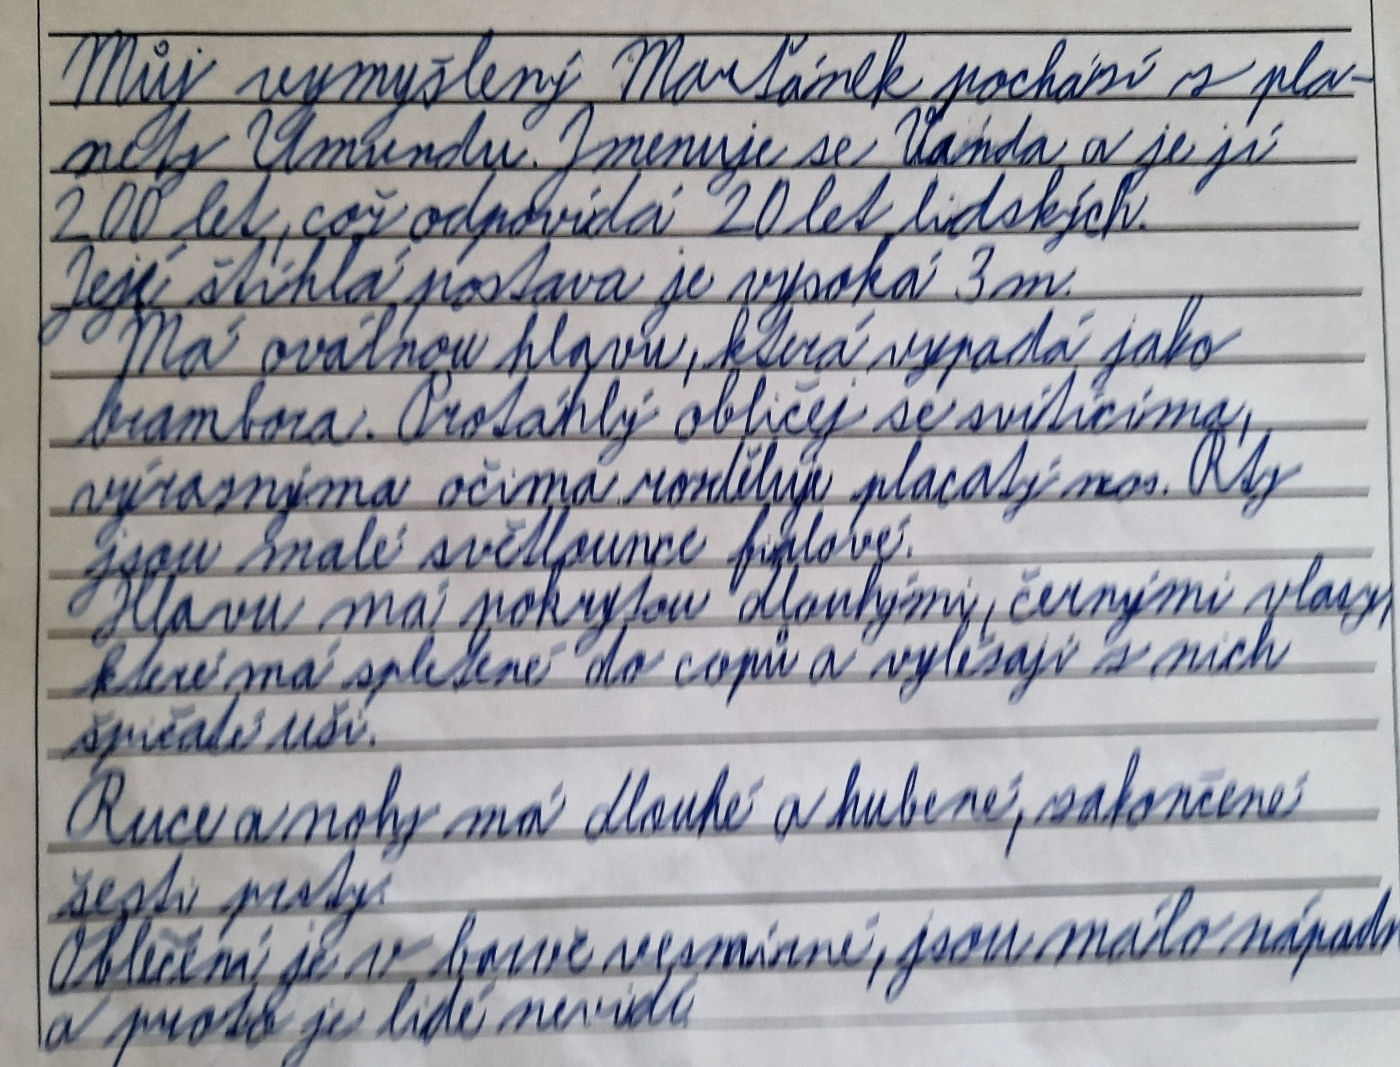 Můj vymyšlený Marťánek pochází z pla-
nety Umundu. Jmenuje se Vanda a je jí
200 let, což odpovídá 20 let lidských.
Její štíhlá postava je vysoká 3 m.
Má oválnou hlavu, která vypadá jako
brambora. Protáhlý obličej se svítícíma,
výraznýma očima rozděluje placatý nos. Rty
jsou malé světlounce fialové.
Hlavu má pokrytou dlouhými, černými vlasy,
které má spletené do copů a vylézají z nich
špičaté uši.
Ruce a nohy má dlouhé a hubené, zakončené
šesti prsty.
Oblečení je v barvě vesmírné, jsou málo nápadn
a proto je lidé nevidí